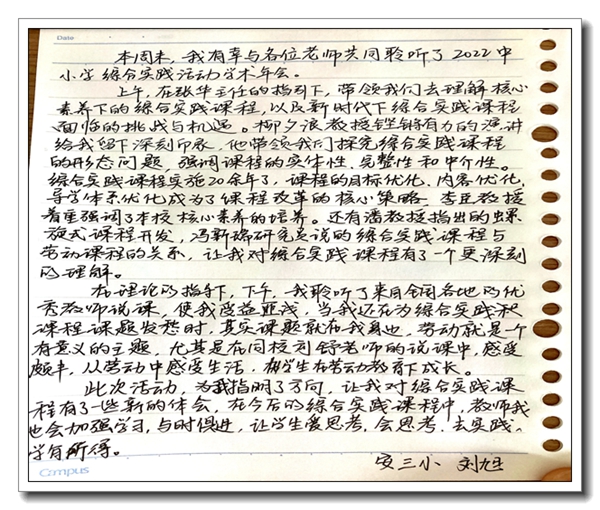 Date
本周末，我有幸与各位老师共同聆听了2022中
小学综合实践活动学术年会。
上午，在张华主任的指引下，带领我们去理解核心
素养下的综合实践课程，以及新时代下综合实践课程
面临的挑战与机遇。柳夕浪教授铿锵有力的演讲
给我留下深刻印象，他带领我们探究综合实践课程
的形态问题，强调课程的实体性、完整性和中介性。
综合实践课程实施20余年了，课程的目标优化、内容优化、
导学体系优化成为了课程改革的核心策略，李臣教授
着重强调了本校核心素养的培养。还有潘教授指出的螺
旋式课程开发，冯新瑞研究员说的综合实践课程与
劳动课程的关系，让我对综合实践课程有了一个更深刻
的理解。
在理论的指导下，下午，我聆听了来自全国各地的优
秀教师说课，使我受益匪浅，当我还在为综合实践
课程课题发愁时，其实课题就在我身边，劳动就是一个
有意义的主题，尤其是在同校刘舒老师的说课中，感受
颇丰，从劳动中感受生活，在劳动教育下成长。
此次活动，为我指明了方向，让我对综合实践课
程有了一些新的体会，在今后的综合实践课程中，教师我
也会加强学习，与时俱进，让学生爱思考，会思考，去实践，
学有所得。
安三小 刘旭
Campus